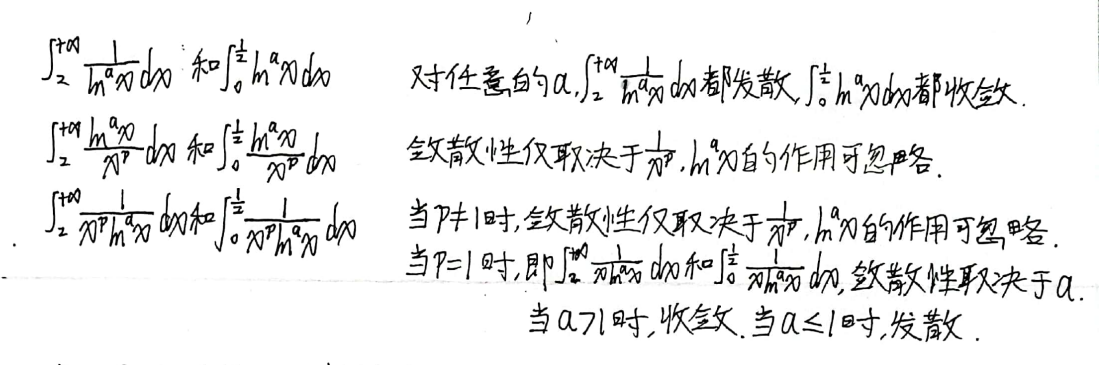 ∫₂^{+∞} 1/ln^a x dx 和 ∫₀^{1/2} ln^a x dx 对任意的a, ∫₂^{+∞} 1/ln^a x dx都发散, ∫₀^{1/2} ln^a x dx都收敛.
∫₂^{+∞} ln^a x/x^p dx 和 ∫₀^{1/2} ln^a x/x^p dx 敛散性仅取决于 1/x^p, ln^a x的作用可忽略.
∫₂^{+∞} 1/(x^p ln^a x) dx 和 ∫₀^{1/2} 1/(x^p ln^a x) dx 当P≠1时, 敛散性仅取决于 1/x^p, ln^a x的作用可忽略.
当P=1时, 即 ∫₂^{+∞} 1/(x ln^a x) dx 和 ∫₀^{1/2} 1/(x ln^a x) dx, 敛散性取决于a.
当a>1时, 收敛. 当a≤1时, 发散.